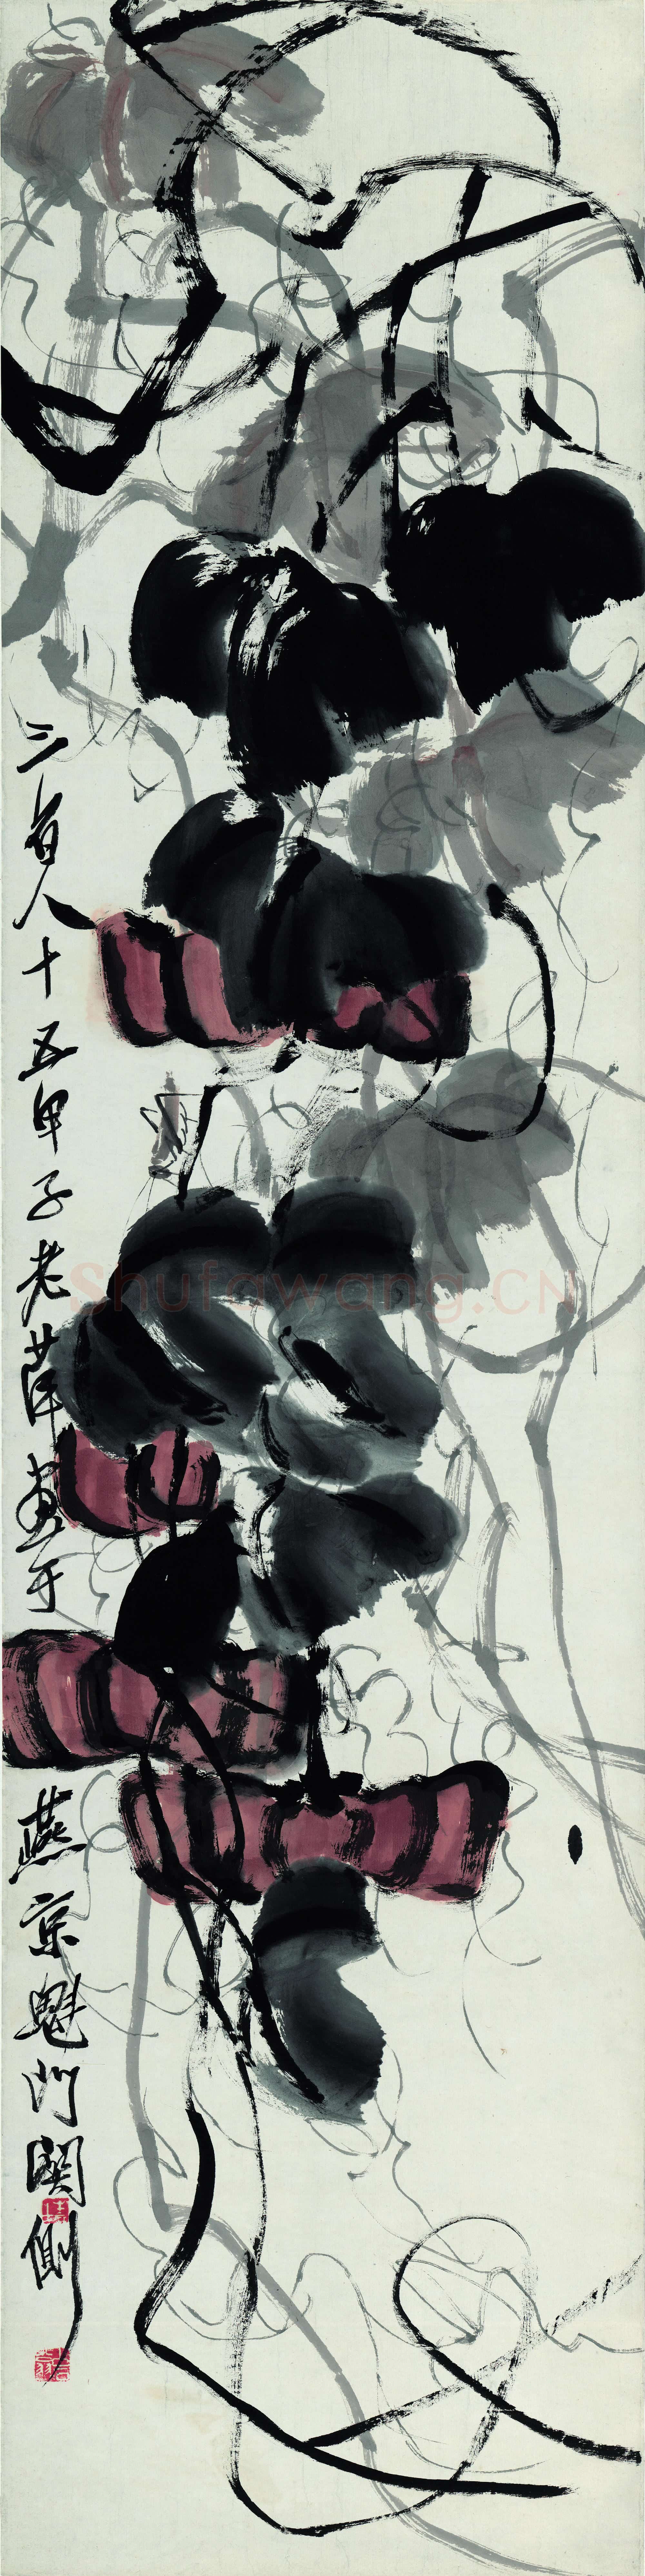 三百八十五甲子老萍畫于
燕京鬼門關側
Shufawang.CN